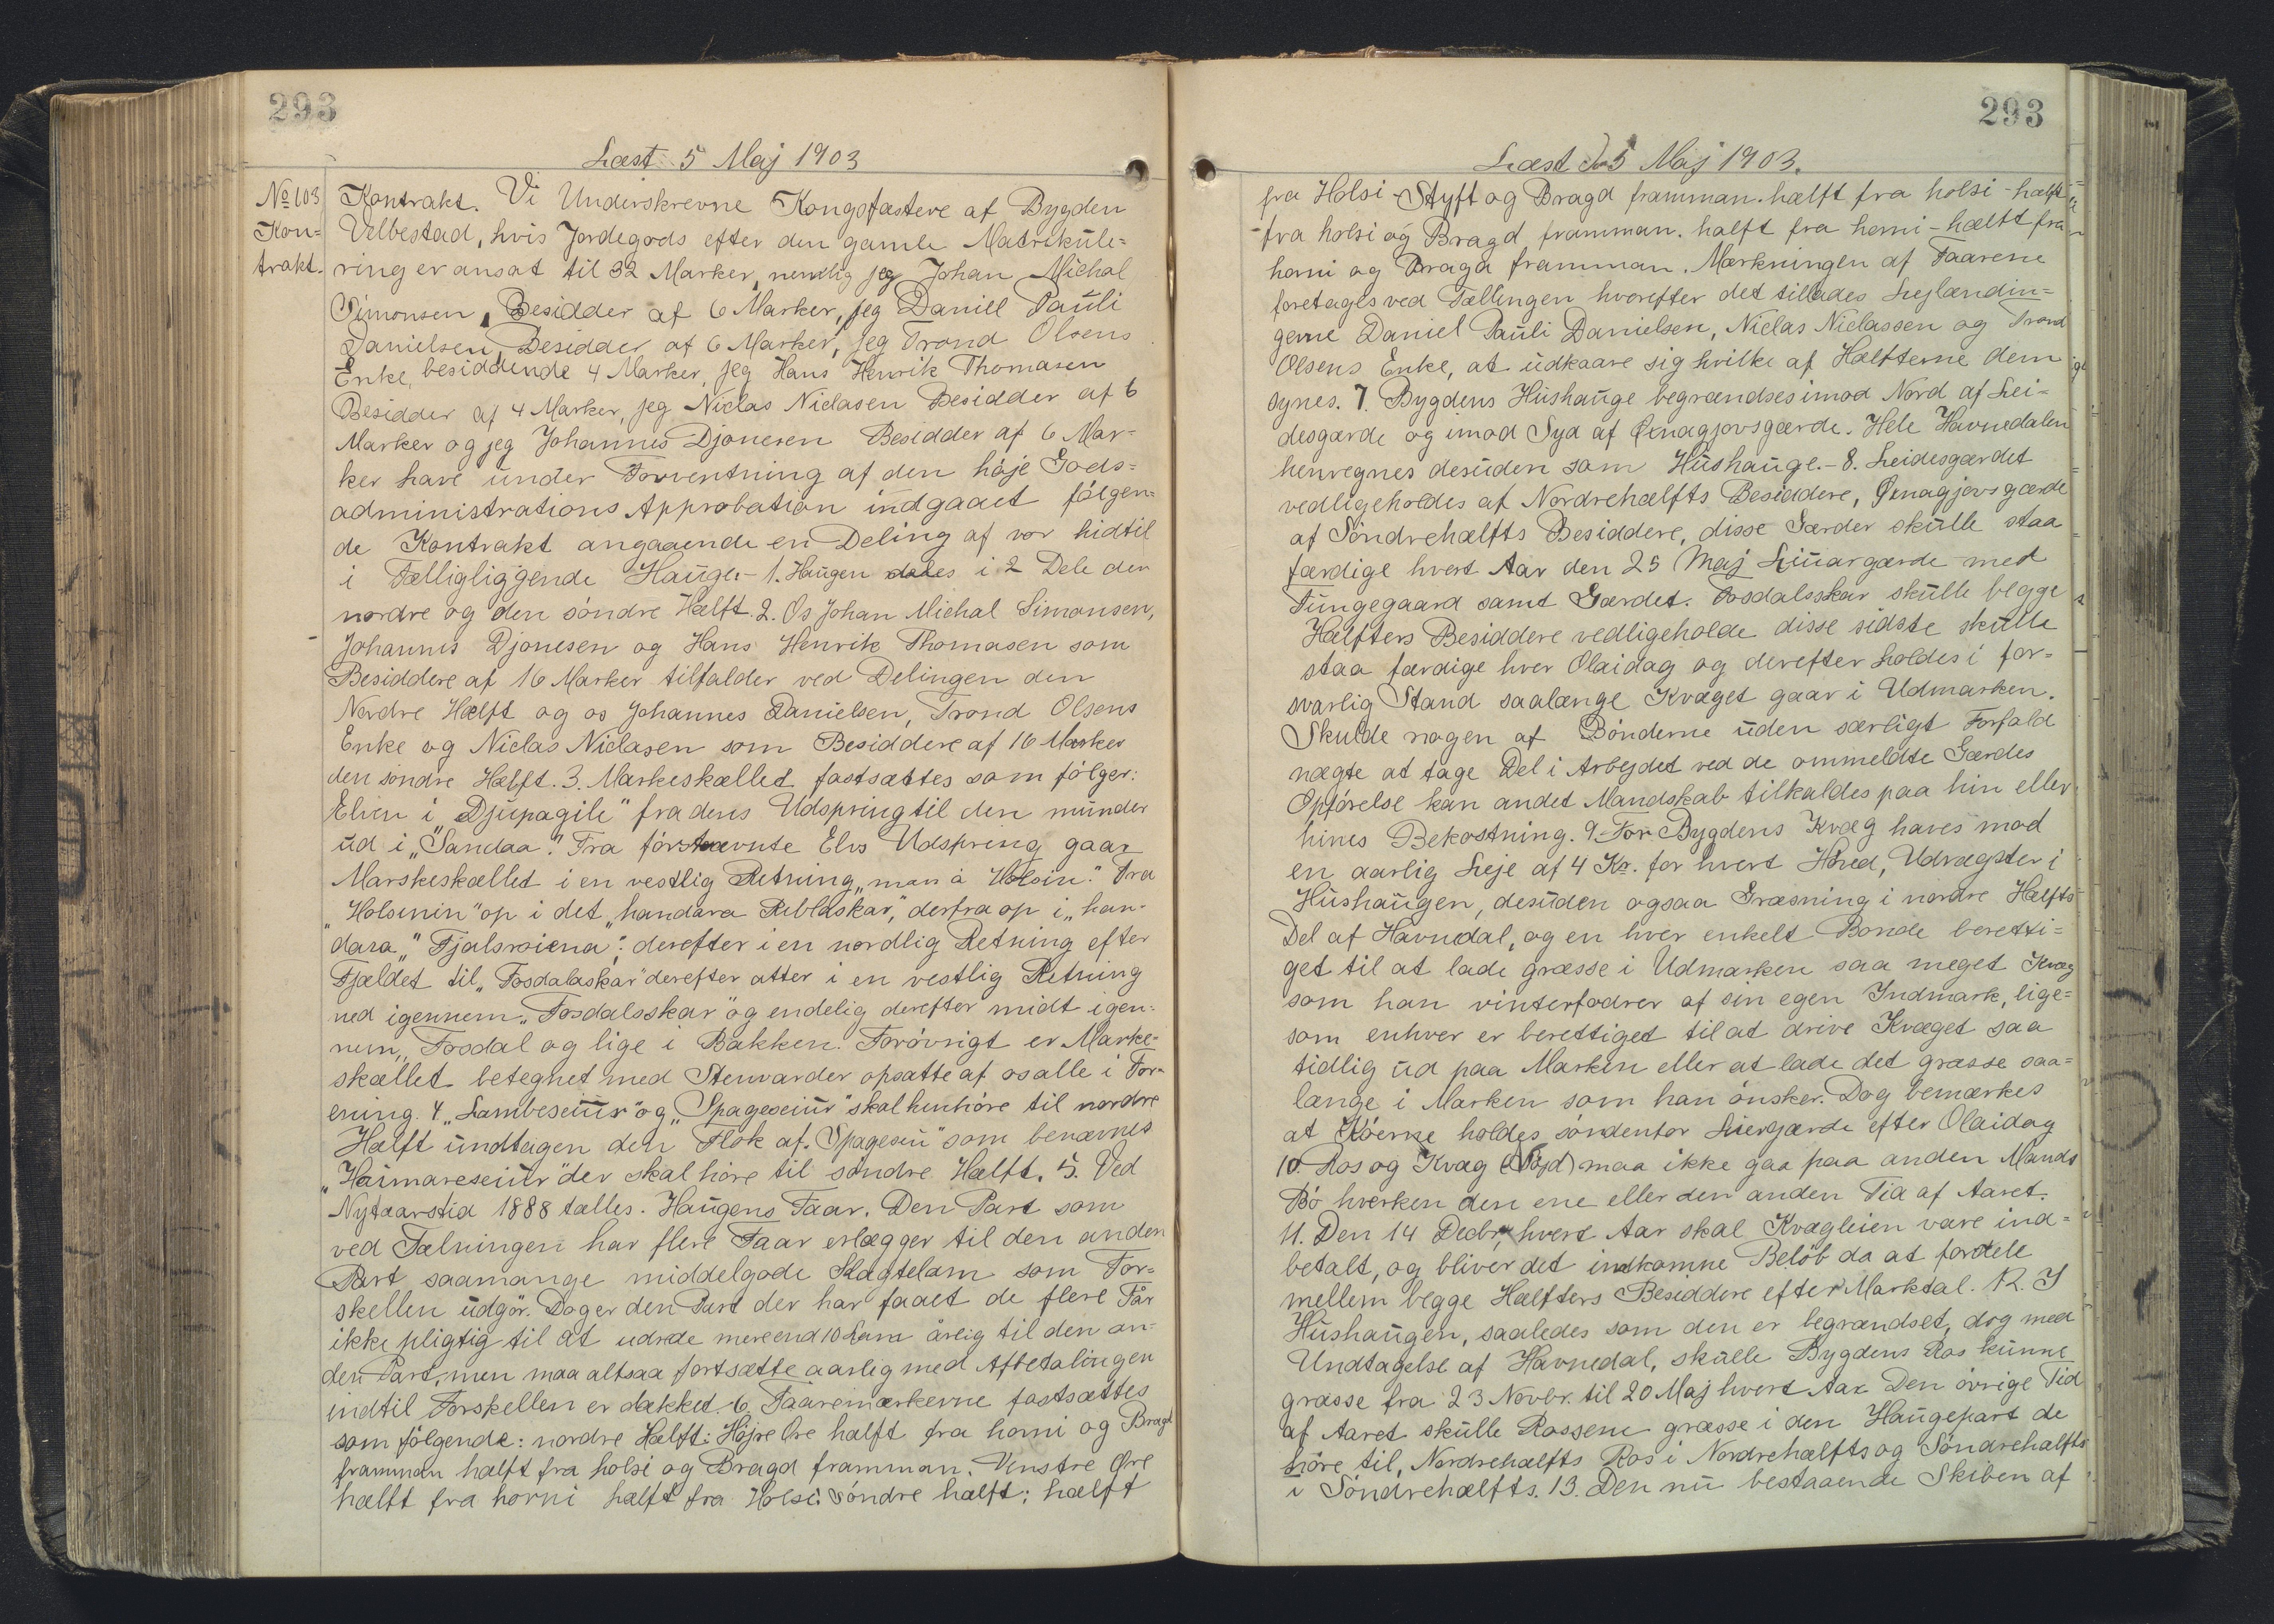 293
Læst 5 Maj 1903
No 103
Kon=
trakt.
Kontrakt. Vi Underskrevne Kongsfæstere af Bygden
Velbestad, hvis Jordegods efter den gamle Matrikule=
ring er ansat til 32 Marker, nemlig jeg Johan Michal
Simonsen, Besidder af 6 Marker, jeg Daniel Pauli
Danielsen, Besidder af 6 Marker, jeg Trond Olsens
Enke, besiddende 4 Marker, jeg Hans Henrik Thomasen
Besidder af 4 Marker, jeg Niclas Niclasen Besidder af 6
Marker og jeg Johannes Djonesen Besidder af 6 Mar=
ker have under Forventning af den höje Gods=
administrations Approbation indgaaet fölgen=
de Kontrakt angaaende en Deling af vor hidtil
i Fælligliggende Hauge. - 1. Haugen deles i 2 Dele den
nordre og den söndre Hælft. 2. Os Johan Michal Simonsen,
Johannes Djonesen og Hans Henrik Thomasen som
Besiddere af 16 Marker tilfalder ved Delingen den
Nordre Hælft og os Johannes Danielsen, Trond Olsens
Enke og Niclas Niclasen som Besiddere af 16 Marker
den söndre Hælft. 3. Markeskællet fastsættes som fölger:
Elven i „Djupagile" fra dens Udspring til den munder
ud i „Sandaa". Fra förstnævnte Elvs Udspring gaar
Marskeskællet i en vestlig Retning „man á Holsin". Fra
„Holsinin" op i det „handara Reblaskar", derfra op i „han-
dara" „Fjalsroiena"; derefter i en nordlig Retning efter
Fjældet til „Fosdalaskar" derefter atter i en vestlig Retning
ned igennem „Fosdalsskar" og endelig derefter midt igen=
nem „Fosdal og lige i Bakken. Forövrigt er Marke=
skællet betegnet med Stenvarder opsatte af os alle i For=
ening. 4 „Lambeseiur" og „Spageseiur" skal henhöre til nordre
Hælft undtagen den Flok af „Spageseiu" som benævnes
„Haimareseiur" der skal höre til söndre Hælft. 5. Ved
Nytaarstid 1888 tælles Haugens Faar. Den Part som
ved Tælningen har flere Faar erlægger til den anden
Part saamange middelgode Slagtelam som For=
skellen udgör. Dog er den Part der har faaet de flere Får
ikke pligtig til at udrede mere end 10 Lam årlig til den an=
den Part, men maa altsaa fortsætte aarlig med Afbetalingen
indtil Forskellen er dækket. 6. Faaremærkerne fastsættes
som fölgende: nordre Hælft: Höjre Öre hælft fra horni og Bragd
framman hælft fra holsi og Bragd framman. Venstre Öre
hælft fra horni hælft fra Holsi: söndre hælft: hælft
293
Læst d. 5 Maj 1903.
fra Holsi - Styft og Bragd framman. hælft fra holsi - hælft
- fra holsi og Bragd framman. hælft fra horni - hælft fra
horni og Bragd framman. Mærkningen af Faarene
foretages ved Tællingen hvorefter det tillades Lejlændin=
gerne Daniel Pauli Danielsen, Niclas Niclassen og Trond
Olsens Enke, at udkaare sig hvilke af Hælfterne dem
synes. 7. Bygdens Hushauge begrændses imod Nord af Lei=
desgærde og imod Syd af Öxnagjovsgærde. Hele Havnedalen
henregnes desuden som Hushauge. - 8. Leidesgærdet
vedligeholdes af Nordrehælfts Besiddere, Öxnagjovsgærde
af Söndrehælfts Besiddere, disse Gærder skulle staa
færdige hvert Aar den 25 Maj Liuargærde med
Tungegaard samt Gærdet. Fosdalsskar skulle begge
Hælfters Besiddere vedligeholde disse sidste skulle
staa færdige hver Olaidag og derefter holdes i for=
svarlig Stand saalænge Kvæget gaar i Udmarken.
Skulde nogen af Bönderne uden særligt Forfald
nægte at tage Del i Arbejdet ved de ommeldte Gærdes
Opförelse kan andet Mandskab tilkaldes paa hin eller
hines Bekostning. 9. For Bygdens Kvæg haves mod
en aarlig Leje af 4 Kr. for hvert Höved, Udrægster i
Hushaugen, desuden ogsaa Græsning i nordre Hælfts
Del af Havnedal, og en hver enkelt Bonde beretti=
get til at lade græsse i Udmarken saa meget Kvæg
som han vinterfodrer af sin egen Indmark, lige=
som enhver er berettiget til at drive Kvæget saa
tidlig ud paa Marken eller at lade det græsse saa=
længe i Marken som han önsker. Dog bemærkes
at Köerne holdes söndenfor Liuergærde efter Olaidag
10. Ros og Kvæg (Nöjd) maa ikke gaa paa anden Mands
Bö hverken den ene eller den anden Tid af Aaret.
11. Den 14 Decbr, hvert Aar skal Kvægleien være ind=
betalt, og bliver det indkomne Belöb da at fordele
mellem begge Hælfters Besiddere efter Marketal. 12. I
Hushaugen, saaledes som den er begrændset, dog med
Undtagelse af Havnedal, skulle Bygdens Ros kunne
græsse fra 23 Novbr. til 20 Maj hvert Aar. Den övrige Tid
af Aaret skulle Rossene græsse i den Haugepart de
höre til, Nordrehælfts Ros i Nordrehælfts og Söndrehælfts
i Söndrehælfts. 13. Den nu bestaaende Skiben af